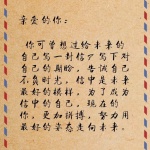 亲爱的你：
你可曾想过给未来的
自己写一封信？写下对
自己的期盼，告诫自己
不负时光，信中是未来
最好的模样，为了成为
信中的自己，现在的
你，更加拼搏，努力用
最好的姿态走向未来。